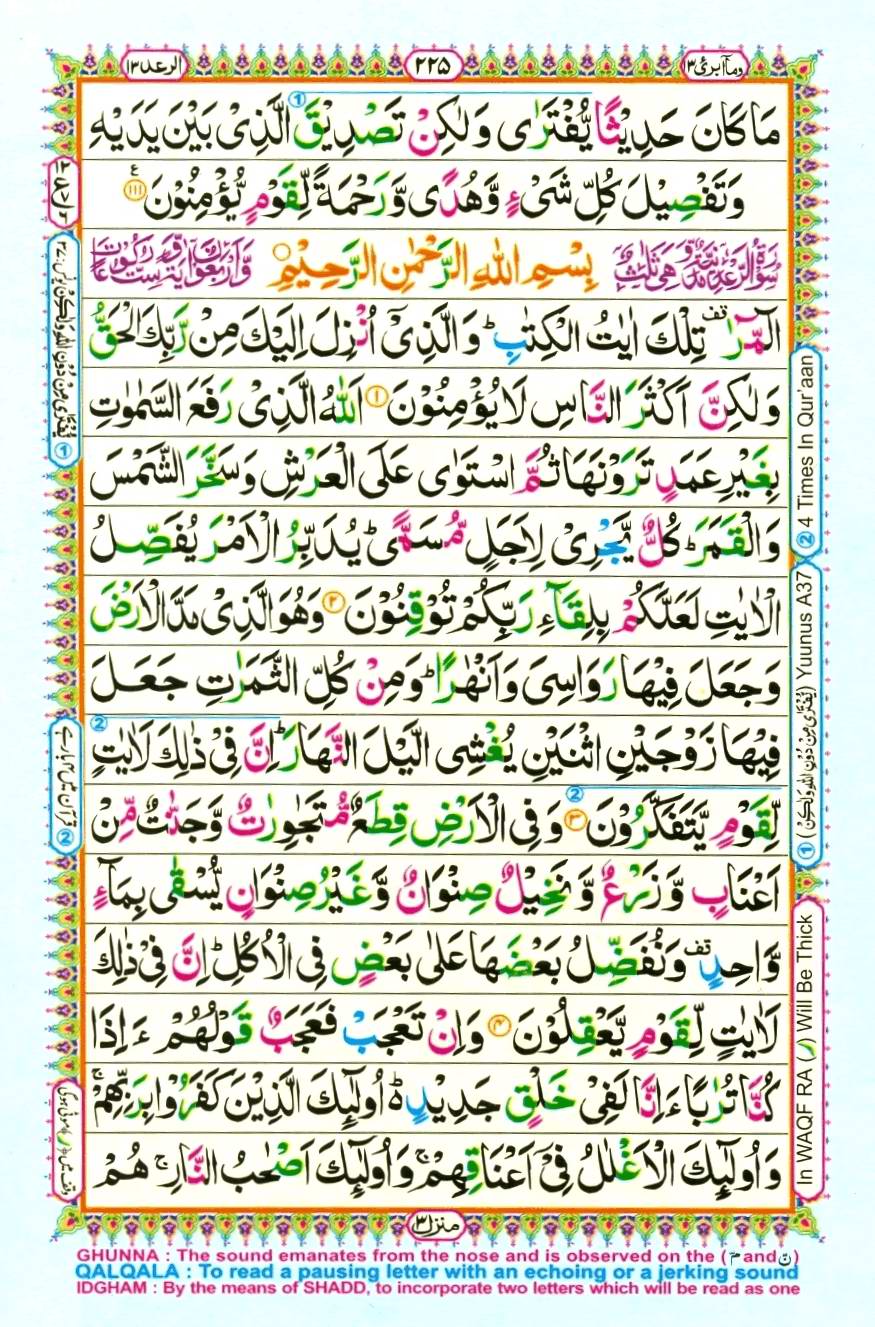 وما ابرئ ١٣
٢٢٥
الرعد ١٣
مَا كَانَ حَدِيْثًا يُّفْتَرٰى وَ لٰكِنْ تَصْدِيْقَ الَّذِىْ بَيْنَ يَدَيْهِ ①
وَ تَفْصِيْلَ كُلِّ شَىْءٍ وَّ هُدًى وَّ رَحْمَةً لِّقَوْمٍ يُّؤْمِنُوْنَ ۱۱۱ ع
سُوْرَةُ الرَّعْدِ مَدَنِيَّةٌ وَّ هِىَ ثَلٰثٌ بِسْمِ اللهِ الرَّحْمٰنِ الرَّحِيْمِ وَّ اَرْبَعُوْنَ اٰيَةً وَّ سِتُّ رُكُوْعَاتٍ
الٓمّٓرٰ قف تِلْكَ اٰيٰتُ الْكِتٰبِ ؕ وَ الَّذِىْۤ اُنْزِلَ اِلَيْكَ مِنْ رَّبِّكَ الْحَقُّ
وَ لٰكِنَّ اَكْثَرَ النَّاسِ لَا يُؤْمِنُوْنَ ۱ اَللهُ الَّذِىْ رَفَعَ السَّمٰوٰتِ
بِغَيْرِ عَمَدٍ تَرَوْنَهَا ثُمَّ اسْتَوٰى عَلَى الْعَرْشِ وَ سَخَّرَ الشَّمْسَ
وَ الْقَمَرَ ؕ كُلٌّ يَّجْرِىْ لِاَجَلٍ مُّسَمًّى ؕ يُدَبِّرُ الْاَمْرَ يُفَصِّلُ
الْاٰيٰتِ لَعَلَّكُمْ بِلِقَآءِ رَبِّكُمْ تُوْقِنُوْنَ ۲ وَ هُوَ الَّذِىْ مَدَّ الْاَرْضَ
وَ جَعَلَ فِيْهَا رَوَاسِىَ وَ اَنْهٰرًا ؕ وَ مِنْ كُلِّ الثَّمَرٰتِ جَعَلَ
فِيْهَا زَوْجَيْنِ اثْنَيْنِ يُغْشِى الَّيْلَ النَّهَارَ ؕ اِنَّ فِىْ ذٰلِكَ لَاٰيٰتٍ ②
لِّقَوْمٍ يَّتَفَكَّرُوْنَ ۳ ② وَ فِى الْاَرْضِ قِطَعٌ مُّتَجٰوِرٰتٌ وَّ جَنّٰتٌ مِّنْ
اَعْنَابٍ وَّ زَرْعٌ وَّ نَخِيْلٌ صِنْوَانٌ وَّ غَيْرُ صِنْوَانٍ يُّسْقٰى بِمَآءٍ
وَّاحِدٍ قف وَ نُفَضِّلُ بَعْضَهَا عَلٰى بَعْضٍ فِى الْاُكُلِ ؕ اِنَّ فِىْ ذٰلِكَ
لَاٰيٰتٍ لِّقَوْمٍ يَّعْقِلُوْنَ ۴ وَ اِنْ تَعْجَبْ فَعَجَبٌ قَوْلُهُمْ ءَ اِذَا
كُنَّا تُرٰبًا ءَ اِنَّا لَفِىْ خَلْقٍ جَدِيْدٍ ؕ۬ اُولٰٓئِكَ الَّذِيْنَ كَفَرُوْا بِرَبِّهِمْ ۚ
وَ اُولٰٓئِكَ الْاَغْلٰلُ فِىْۤ اَعْنَاقِهِمْ ۚ وَ اُولٰٓئِكَ اَصْحٰبُ النَّارِ ۚ هُمْ
منزل ٣
② 4 Times In Qur'aan
① (يُّفْتَرٰى مِنْ دُوْنِ اللهِ وَلٰكِنْ) Yuunus A37
In WAQF RA (ر) Will Be Thick
يُّفْتَرٰى مِنْ دُوْنِ اللهِ وَلٰكِنْ يونس: ٣٧ ①
② قرآن میں ۴ بار ہے
وقف میں (ر) موٹی ہوگی
GHUNNA : The sound emanates from the nose and is observed on the (مّ and نّ)
QALQALA : To read a pausing letter with an echoing or a jerking sound
IDGHAM : By the means of SHADD, to incorporate two letters which will be read as one